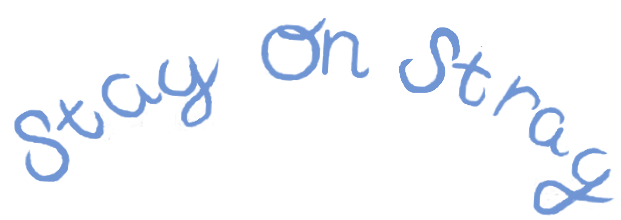 Stay On Stray